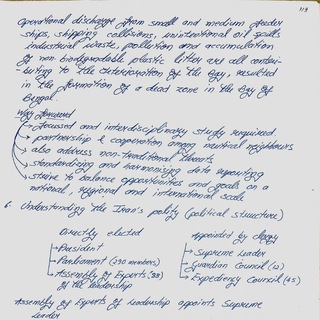 119
operational discharge from small and medium feeder
ships, shipping collisions, unintentional oil spills
industrial waste, pollution and accumulation
of non-biodegradable plastic litter are all contri-
-buting to the deterioration of the bay, resulted
in the formation of a dead zone in the Bay of
Bengal.
Way forward
→ focused and interdisciplinary study required.
→ partnership & cooperation among neutical neighbours
→ also address non-traditional threats
→ standardizing and harmonising data reporting
→ strive to balance opportunities and goals on a
national, regional and international scale
6. Understanding the Iran's polity (political structure)
Directly elected
→ President
→ Parliament (290 members)
→ Assembly of Experts (88)
of the leadership
Appointed by clergy
→ Supreme Leader
→ Guardian Council (12)
→ Expediency Council (45)
Assembly of Experts of Leadership appoints Supreme
Leader